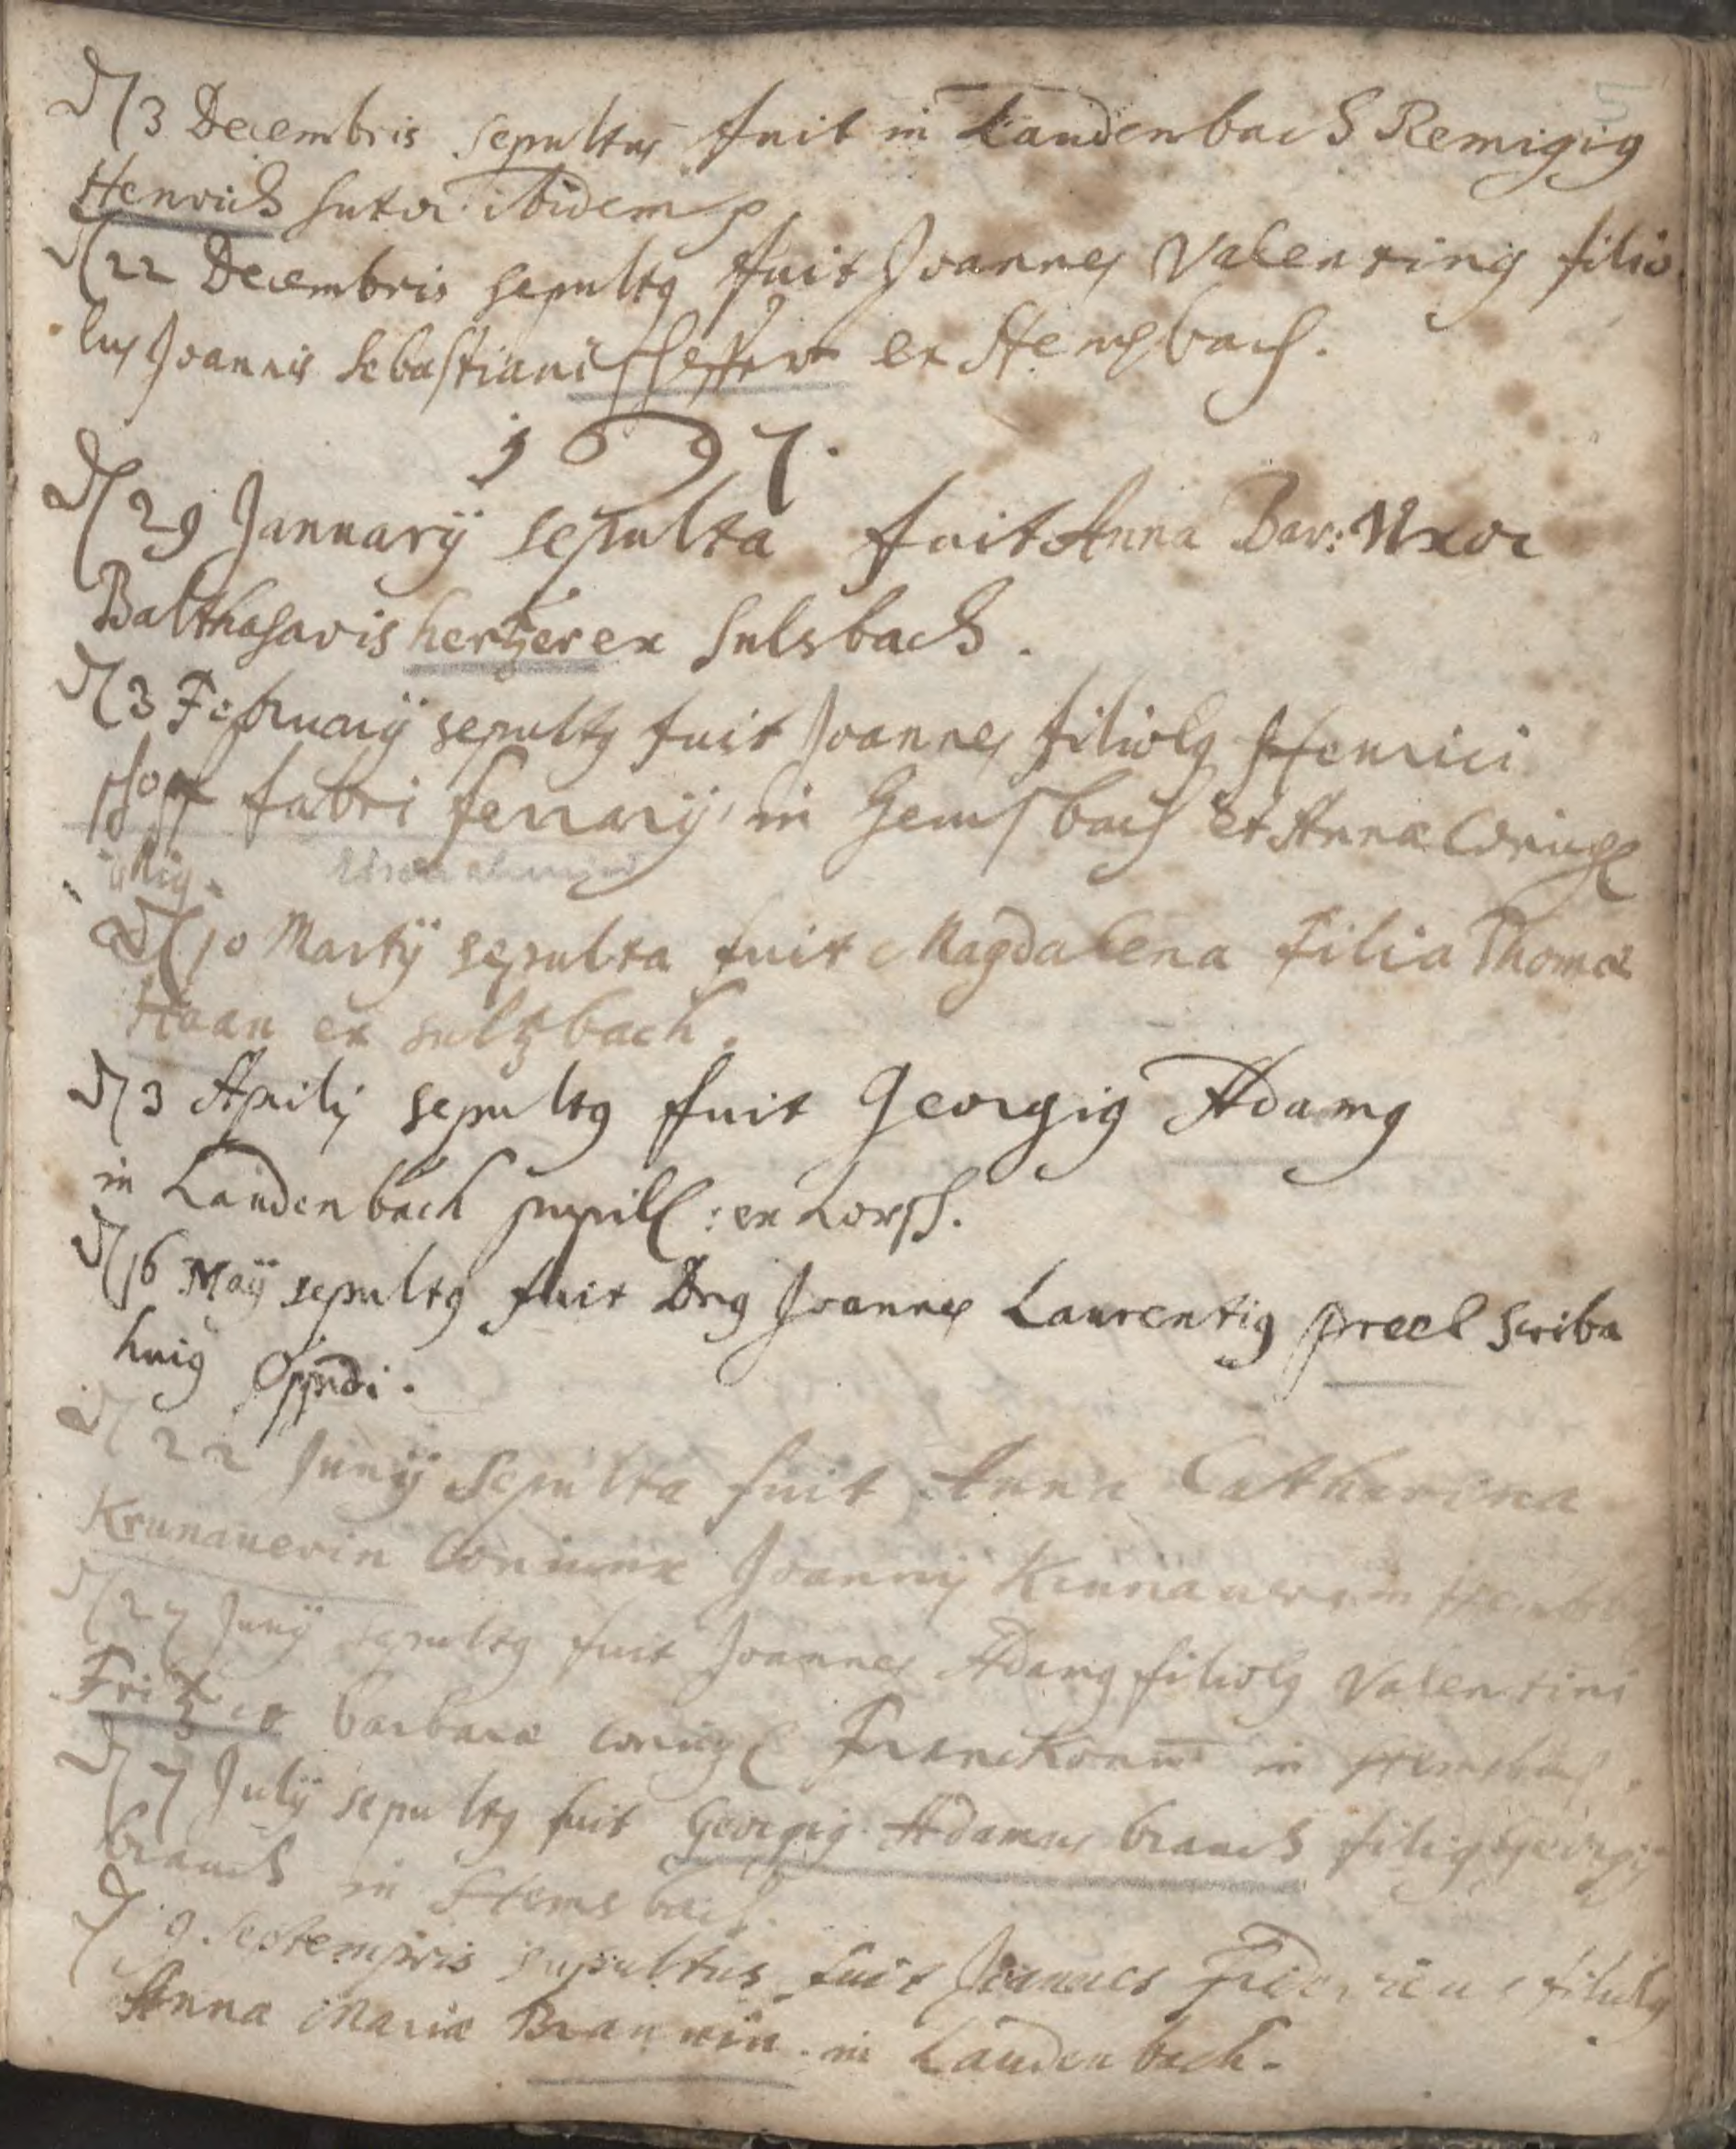 d 3 Decembris sepultus fuit in Laudenbach Remigius
Henrich sutor ibidem
d 22 Decembris sepultus fuit Joannes Valentinus filio
lus Joannis Sebastiani scheffer ex Hemsbach.
1697.
d 29 Januarÿ sepulta fuit Anna Bar: Uxor
Balthasaris hertzer ex sulsbach.
d 3 Februarÿ sepultus fuit Joannes filiolus Henrici
schopf fabri ferrarÿ in Hemsbach et Anna coniugis
d 10 Martÿ sepulta fuit Magdalena filia Thomæ
Haan ex sultzbach.
d 3 Aprilis sepultus fuit Georgius Adamus
in Laudenbach pupill: ex Lorsch.
d 16 Maÿ sepultus fuit Dnus Joannes Laurentius preel scriba
huius oppidi.
d 22 Junÿ sepulta fuit Anna Catharina
Krunauerin Joannis
d 27 Junÿ sepultus fuit Joannes Adamus filiolus Valentini
Fritz et barbaræ coniug in Hemsbach.
d 7 Julÿ sepultus fuit Georgius Adamus brauch filius Georgÿ
brauch in Hemsbach.
d 9. Septempris sepultus fuit Joannes filiolus
Anna Mariæ in Laudenbach.